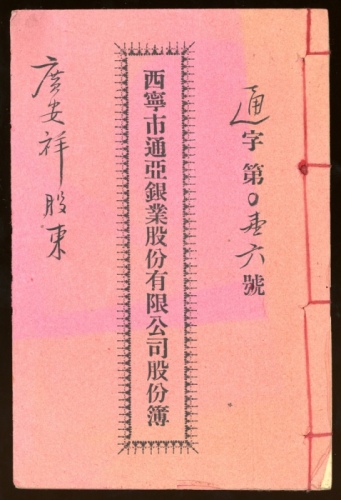 通字第0壹六號
西寧市通亞銀業股份有限公司股份簿
廣安祥股東